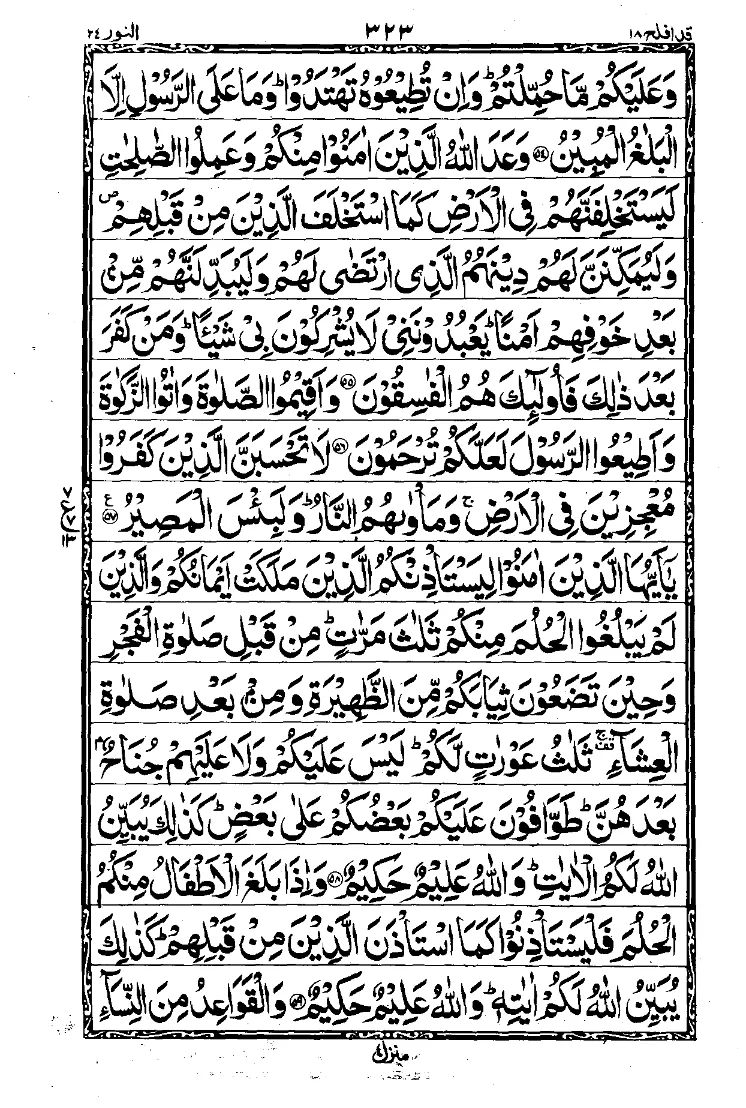 قد افلح ١٨ ٣٢٣ النور ٢٤
وَعَلَيْكُمْ مَّا حُمِّلْتُمْ ؕ وَاِنْ تُطِيْعُوْهُ تَهْتَدُوْا ؕ وَمَا عَلَى الرَّسُوْلِ اِلَّا
الْبَلٰغُ الْمُبِيْنُ ﴿۵۴﴾ وَعَدَ اللّٰهُ الَّذِيْنَ اٰمَنُوْا مِنْكُمْ وَعَمِلُوا الصّٰلِحٰتِ
لَيَسْتَخْلِفَنَّهُمْ فِي الْاَرْضِ كَمَا اسْتَخْلَفَ الَّذِيْنَ مِنْ قَبْلِهِمْ ۪
وَلَيُمَكِّنَنَّ لَهُمْ دِيْنَهُمُ الَّذِى ارْتَضٰى لَهُمْ وَلَيُبَدِّلَنَّهُمْ مِّنْۢ
بَعْدِ خَوْفِهِمْ اَمْنًا ؕ يَعْبُدُوْنَنِيْ لَا يُشْرِكُوْنَ بِيْ شَيْـًٔا ؕ وَمَنْ كَفَرَ
بَعْدَ ذٰلِكَ فَاُولٰٓئِكَ هُمُ الْفٰسِقُوْنَ ﴿۵۵﴾ وَاَقِيْمُوا الصَّلٰوةَ وَاٰتُوا الزَّكٰوةَ
وَاَطِيْعُوا الرَّسُوْلَ لَعَلَّكُمْ تُرْحَمُوْنَ ﴿۵۶﴾ لَا تَحْسَبَنَّ الَّذِيْنَ كَفَرُوْا
مُعْجِزِيْنَ فِي الْاَرْضِ ۚ وَمَاْوٰىهُمُ النَّارُ ؕ وَلَبِئْسَ الْمَصِيْرُ ﴿۵۷﴾ ع
يٰٓاَيُّهَا الَّذِيْنَ اٰمَنُوْا لِيَسْتَاْذِنْكُمُ الَّذِيْنَ مَلَكَتْ اَيْمَانُكُمْ وَالَّذِيْنَ
لَمْ يَبْلُغُوا الْحُلُمَ مِنْكُمْ ثَلٰثَ مَرّٰتٍ ؕ مِنْ قَبْلِ صَلٰوةِ الْفَجْرِ
وَحِيْنَ تَضَعُوْنَ ثِيَابَكُمْ مِّنَ الظَّهِيْرَةِ وَمِنْۢ بَعْدِ صَلٰوةِ
الْعِشَآءِ ثَلٰثُ عَوْرٰتٍ لَّكُمْ ؕ لَيْسَ عَلَيْكُمْ وَلَا عَلَيْهِمْ جُنَاحٌۢ
بَعْدَهُنَّ ؕ طَوّٰفُوْنَ عَلَيْكُمْ بَعْضُكُمْ عَلٰى بَعْضٍ ؕ كَذٰلِكَ يُبَيِّنُ
اللّٰهُ لَكُمُ الْاٰيٰتِ ؕ وَاللّٰهُ عَلِيْمٌ حَكِيْمٌ ﴿۵۸﴾ وَاِذَا بَلَغَ الْاَطْفَالُ مِنْكُمُ
الْحُلُمَ فَلْيَسْتَاْذِنُوْا كَمَا اسْتَاْذَنَ الَّذِيْنَ مِنْ قَبْلِهِمْ ؕ كَذٰلِكَ
يُبَيِّنُ اللّٰهُ لَكُمْ اٰيٰتِهٖ ؕ وَاللّٰهُ عَلِيْمٌ حَكِيْمٌ ﴿۵۹﴾ وَالْقَوَاعِدُ مِنَ النِّسَآءِ
منزل ٤